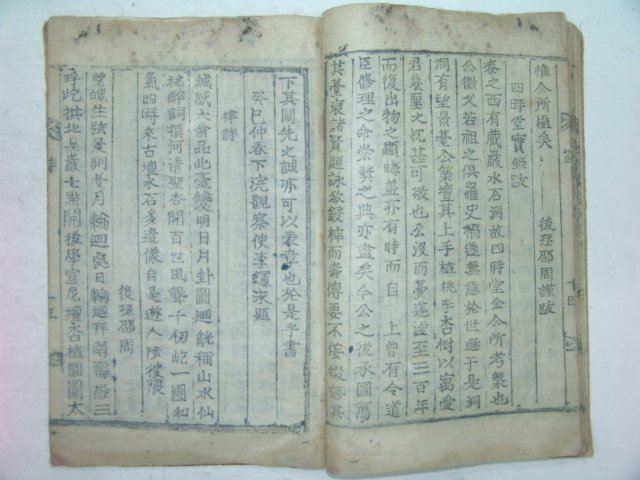 惟公所植矣
後孫邵周謹跋
四時堂實錄跋
泰之西有藏巖水石洞故四時堂金公所考槃也
公徵父若祖之俱罹史禍遂無意於世遯于是洞
洞有望景臺公築壇其上手植桃李杏樹以寓愛
君慕聖之忱甚可敬也公沒而臺遂墟至三百年
而復出物之顯晦盖亦有時而自 上曾有令道
臣修理之命崇奬之典亦盡矣今公之後承圖
其臺裒諸賢題詠欲鋟梓而壽傳要不侫綴語其
下其闡先之誠亦可以表章也於是乎書
癸巳仲春下浣觀察使李鑂永題
律詩
誠感天翁品此臺 明日月卦圖廻 稱山水仙
桃醉詞撰河清聖杏開百世風聲千仞屹一團和
氣四時來古壇水石多遺像自是遊人陟彼隈
後孫邵周
生 臺 月輪廻 日輪廻拜南壽 三
呼屹拱北星巖七點開後學宣尼壇杏植圖圖太